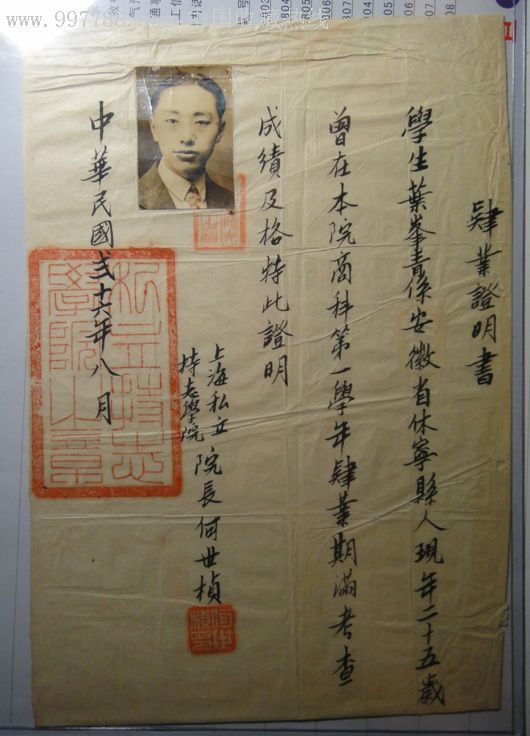 肄業證明書
學生葉峯青係安徽省休寧縣人現年二十五歲
曾在本院商科第一學年肄業期滿考查
成績及格特此證明
上海私立
持志學院
院長何世楨
中華民國弍十六年八月
私立持志
學院之章
何世
楨印
www.997788.com